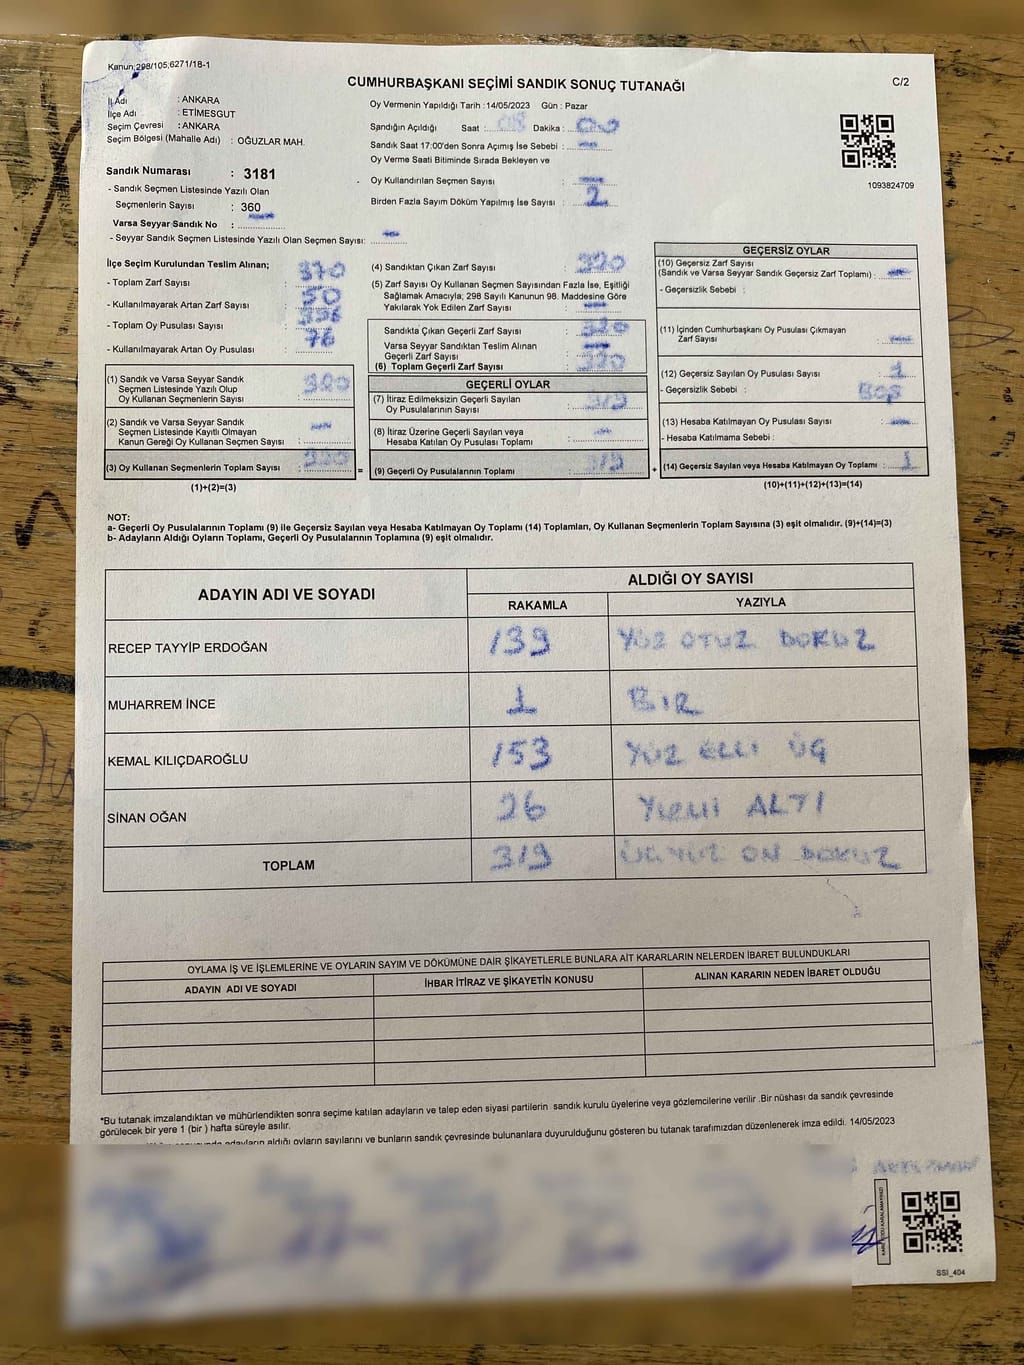 Kanun;298/105;6271/18-1
CUMHURBAŞKANI SEÇİMİ SANDIK SONUÇ TUTANAĞI
C/2
İl Adı : ANKARA
İlçe Adı : ETİMESGUT
Seçim Çevresi : ANKARA
Seçim Bölgesi (Mahalle Adı) : OĞUZLAR MAH.
Sandık Numarası : 3181
- Sandık Seçmen Listesinde Yazılı Olan
Seçmenlerin Sayısı : 360
Varsa Seyyar Sandık No : —
- Seyyar Sandık Seçmen Listesinde Yazılı Olan Seçmen Sayısı: —
Oy Vermenin Yapıldığı Tarih : 14/05/2023 Gün : Pazar
Sandığın Açıldığı Saat : 08 Dakika : 00
Sandık Saat 17:00'den Sonra Açımış İse Sebebi : —
Oy Verme Saati Bitiminde Sırada Bekleyen ve
Oy Kullandırılan Seçmen Sayısı : —
Birden Fazla Sayım Döküm Yapılmış İse Sayısı : 2
1093824709
İlçe Seçim Kurulundan Teslim Alınan;
- Toplam Zarf Sayısı : 370
- Kullanılmayarak Artan Zarf Sayısı : 50
- Toplam Oy Pusulası Sayısı : 396
- Kullanılmayarak Artan Oy Pusulası : 76
(1) Sandık ve Varsa Seyyar Sandık
Seçmen Listesinde Yazılı Olup
Oy Kullanan Seçmenlerin Sayısı : 320
(2) Sandık ve Varsa Seyyar Sandık
Seçmen Listesinde Kayıtlı Olmayan
Kanun Gereği Oy Kullanan Seçmen Sayısı : —
(3) Oy Kullanan Seçmenlerin Toplam Sayısı : 320
(1)+(2)=(3)
=
(4) Sandıktan Çıkan Zarf Sayısı : 320
(5) Zarf Sayısı Oy Kullanan Seçmen Sayısından Fazla İse, Eşitliği
Sağlamak Amacıyla; 298 Sayılı Kanunun 98. Maddesine Göre
Yakılarak Yok Edilen Zarf Sayısı : —
Sandıkta Çıkan Geçerli Zarf Sayısı : 320
Varsa Seyyar Sandıktan Teslim Alınan
Geçerli Zarf Sayısı : —
(6) Toplam Geçerli Zarf Sayısı : 320
GEÇERLİ OYLAR
(7) İtiraz Edilmeksizin Geçerli Sayılan
Oy Pusulalarının Sayısı : 319
(8) İtiraz Üzerine Geçerli Sayılan veya
Hesaba Katılan Oy Pusulası Toplamı : —
(9) Geçerli Oy Pusulalarının Toplamı : 319
+
GEÇERSİZ OYLAR
(10) Geçersiz Zarf Sayısı
(Sandık ve Varsa Seyyar Sandık Geçersiz Zarf Toplamı) : —
- Geçersizlik Sebebi :
(11) İçinden Cumhurbaşkanı Oy Pusulası Çıkmayan
Zarf Sayısı : —
(12) Geçersiz Sayılan Oy Pusulası Sayısı : 1
- Geçersizlik Sebebi : BOŞ
(13) Hesaba Katılmayan Oy Pusulası Sayısı : —
- Hesaba Katılmama Sebebi :
(14) Geçersiz Sayılan veya Hesaba Katılmayan Oy Toplamı : 1
(10)+(11)+(12)+(13)=(14)
NOT:
a- Geçerli Oy Pusulalarının Toplamı (9) ile Geçersiz Sayılan veya Hesaba Katılmayan Oy Toplamı (14) Toplamları, Oy Kullanan Seçmenlerin Toplam Sayısına (3) eşit olmalıdır. (9)+(14)=(3)
b- Adayların Aldığı Oyların Toplamı, Geçerli Oy Pusulalarının Toplamına (9) eşit olmalıdır.
ADAYIN ADI VE SOYADI
ALDIĞI OY SAYISI
RAKAMLA YAZIYLA
RECEP TAYYİP ERDOĞAN 139 YÜZ OTUZ DOKUZ
MUHARREM İNCE 1 BİR
KEMAL KILIÇDAROĞLU 153 YÜZ ELLİ ÜÇ
SİNAN OĞAN 26 YİRMİ ALTI
TOPLAM 319 ÜÇ YÜZ ON DOKUZ
OYLAMA İŞ VE İŞLEMLERİNE VE OYLARIN SAYIM VE DÖKÜMÜNE DAİR ŞİKAYETLERLE BUNLARA AİT KARARLARIN NELERDEN İBARET BULUNDUKLARI
ADAYIN ADI VE SOYADI İHBAR İTİRAZ VE ŞİKAYETİN KONUSU ALINAN KARARIN NEDEN İBARET OLDUĞU
*Bu tutanak imzalandıktan ve mühürlendikten sonra seçime katılan adayların ve talep eden siyasi partilerin sandık kurulu üyelerine veya gözlemcilerine verilir .Bir nüshası da sandık çevresinde
görülecek bir yere 1 (bir ) hafta süreyle asılır.
adayların aldığı oyların sayılarını ve bunların sandık çevresinde bulunanlara duyurulduğunu gösteren bu tutanak tarafımızdan düzenlenerek imza edildi. 14/05/2023
SSI_404